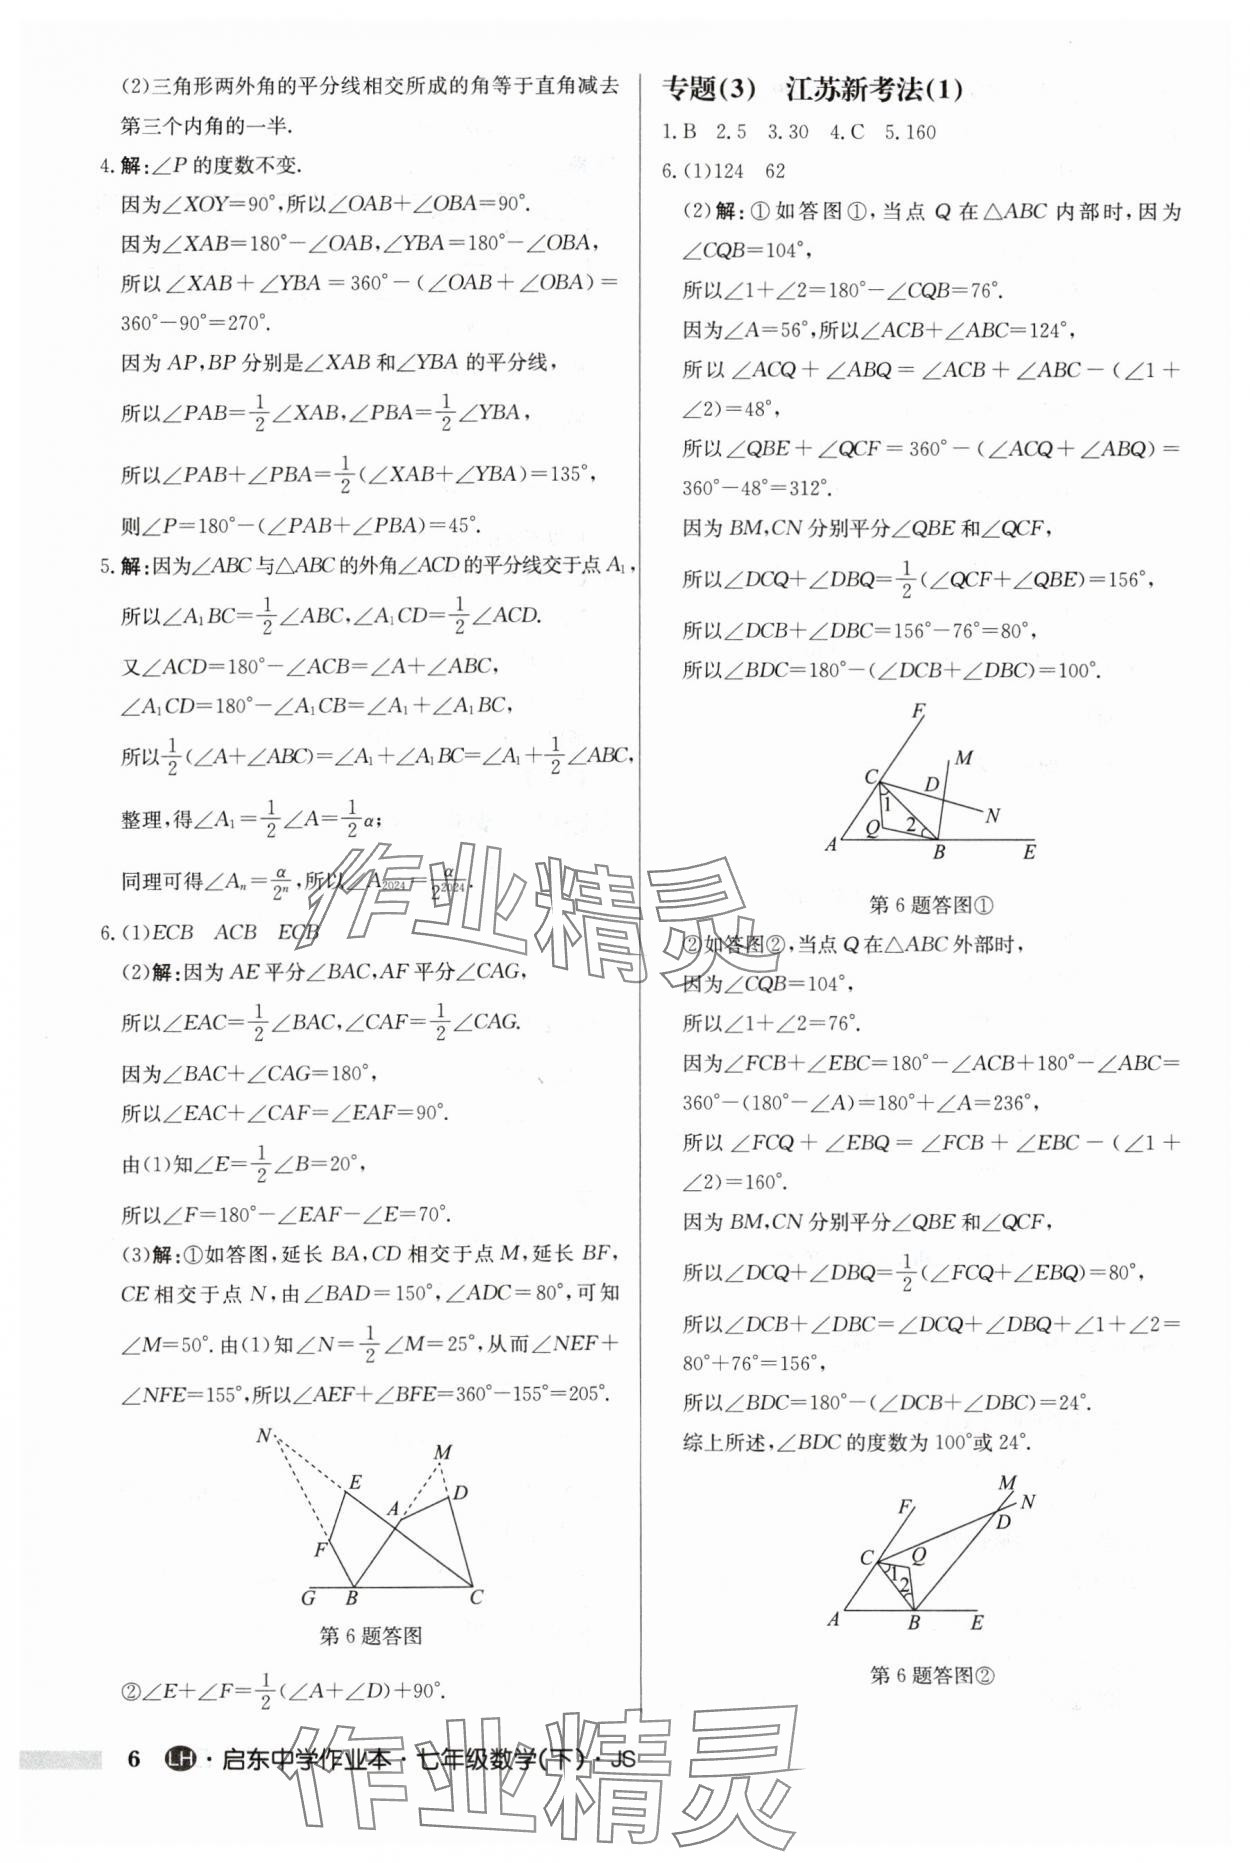 (2)三角形两外角的平分线相交所成的角等于直角减去
第三个内角的一半.
4.解:∠P 的度数不变.
因为∠XOY=90°,所以∠OAB+∠OBA=90°.
因为∠XAB=180°-∠OAB,∠YBA=180°-∠OBA,
所以∠XAB+∠YBA=360°-(∠OAB+∠OBA)=
360°-90°=270°.
因为 AP,BP 分别是∠XAB 和∠YBA 的平分线,
所以∠PAB=1/2∠XAB,∠PBA=1/2∠YBA,
所以∠PAB+∠PBA=1/2(∠XAB+∠YBA)=135°,
则∠P=180°-(∠PAB+∠PBA)=45°.
5.解:因为∠ABC与△ABC的外角∠ACD的平分线交于点A₁,
所以∠A₁BC=1/2∠ABC,∠A₁CD=1/2∠ACD.
又∠ACD=180°-∠ACB=∠A+∠ABC,
∠A₁CD=180°-∠A₁CB=∠A₁+∠A₁BC,
所以1/2(∠A+∠ABC)=∠A₁+∠A₁BC=∠A₁+1/2∠ABC,
整理,得∠A₁=1/2∠A=1/2α;
同理可得∠Aₙ=α/2ⁿ,所以∠A₂₀₂₄=α/2²⁰²⁴.
6.(1)ECB ACB ECB
(2)解:因为 AE平分∠BAC,AF平分∠CAG,
所以∠EAC=1/2∠BAC,∠CAF=1/2∠CAG.
因为∠BAC+∠CAG=180°,
所以∠EAC+∠CAF=∠EAF=90°.
由(1)知∠E=1/2∠B=20°,
所以∠F=180°-∠EAF-∠E=70°.
(3)解:①如答图,延长 BA,CD 相交于点 M,延长 BF,
CE相交于点 N,由∠BAD=150°,∠ADC=80°,可知
∠M=50°.由(1)知∠N=1/2∠M=25°,从而∠NEF+
∠NFE=155°,所以∠AEF+∠BFE=360°-155°=205°.
N
M
E
D
A
F
G B C
第6题答图
②∠E+∠F=1/2(∠A+∠D)+90°.
专题(3) 江苏新考法(1)
1.B 2.5 3.30 4.C 5.160
6.(1)124 62
(2)解:①如答图①,当点 Q 在△ABC 内部时,因为
∠CQB=104°,
所以∠1+∠2=180°-∠CQB=76°.
因为∠A=56°,所以∠ACB+∠ABC=124°,
所以∠ACQ+∠ABQ=∠ACB+∠ABC-(∠1+
∠2)=48°,
所以∠QBE+∠QCF=360°-(∠ACQ+∠ABQ)=
360°-48°=312°.
因为 BM,CN 分别平分∠QBE 和∠QCF,
所以∠DCQ+∠DBQ=1/2(∠QCF+∠QBE)=156°,
所以∠DCB+∠DBC=156°-76°=80°,
所以∠BDC=180°-(∠DCB+∠DBC)=100°.
F
M
C D
1
N
Q 2
A B E
第6题答图①
②如答图②,当点 Q在△ABC 外部时,
因为∠CQB=104°,
所以∠1+∠2=76°.
因为∠FCB+∠EBC=180°-∠ACB+180°-∠ABC=
360°-(180°-∠A)=180°+∠A=236°,
所以∠FCQ+∠EBQ=∠FCB+∠EBC-(∠1+
∠2)=160°.
因为 BM,CN 分别平分∠QBE 和∠QCF,
所以∠DCQ+∠DBQ=1/2(∠FCQ+∠EBQ)=80°,
所以∠DCB+∠DBC=∠DCQ+∠DBQ+∠1+∠2=
80°+76°=156°,
所以∠BDC=180°-(∠DCB+∠DBC)=24°.
综上所述,∠BDC的度数为100°或24°.
M
F N
D
C Q
1
2
A B E
第6题答图②
作业精灵
作业精灵
6 LH·启东中学作业本·七年级数学(下)·JS